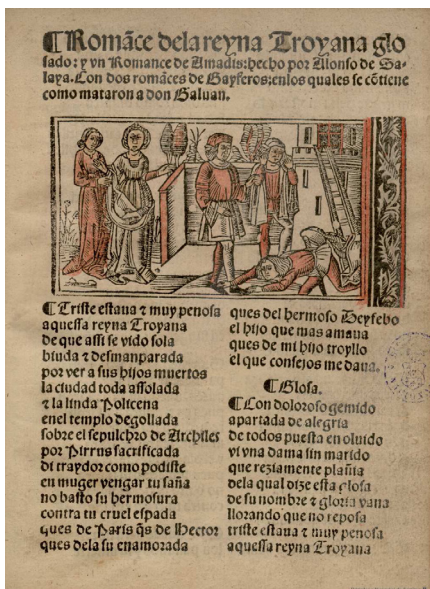 ¶Romāce dela reyna Troyana glo
sado: y vn Romance de Amadis: hecho por Alonso de Sa-
laya. Con dos romāces de Gayferos: enlos quales se cōtiene
como mataron a don Galuan.
¶Triste estaua ⁊ muy penosa
aquessa reyna Troyana
de que assi se vido sola
biuda ⁊ desmanparada
por ver a sus hijos muertos
la ciudad toda assolada
⁊ la linda Policena
enel templo degollada
sobre el sepulchro de Archiles
por Pirrus sacrificada
di traydor como podiste
en muger vengar tu saña
no basto su hermosura
contra tu cruel espada
ques de Paris q̄s de Hector
ques dela su enamorada
ques del hermoso Deyfebo
el hijo que mas amaua
ques de mi hijo troyllo
el que consejos me daua.
¶Glosa.
¶Con doloroso gemido
apartada de alegria
de todos puesta en oluido
vi vna dama sin marido
que reziamente plañia
dela qual dize esta glosa
de su nombre ⁊ gloria vana
llorando que no reposa
triste estaua ⁊ muy penosa
aquessa reyna Troyana